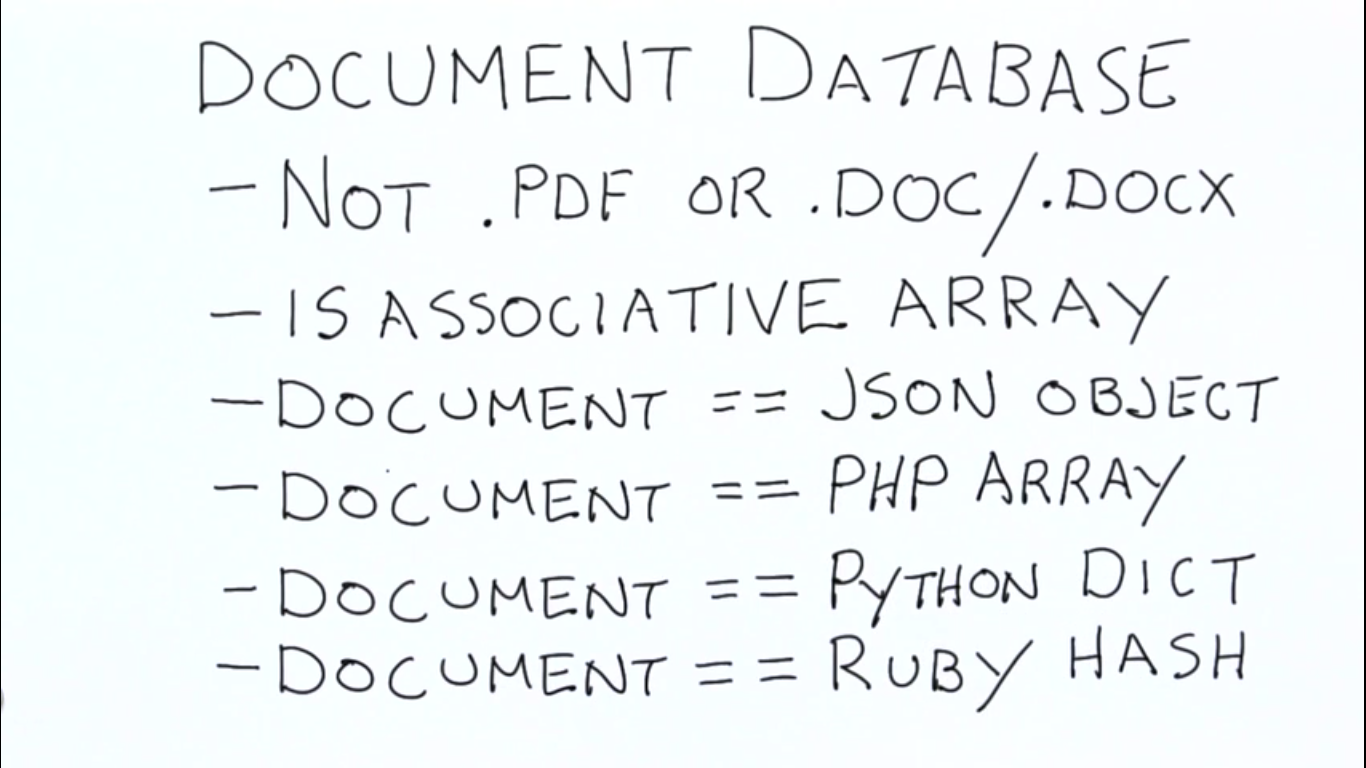 DOCUMENT DATABASE
- NOT .PDF OR .DOC/.DOCX
- IS ASSOCIATIVE ARRAY
- DOCUMENT == JSON OBJECT
- DOCUMENT == PHP ARRAY
- DOCUMENT == PYTHON DICT
- DOCUMENT == RUBY HASH